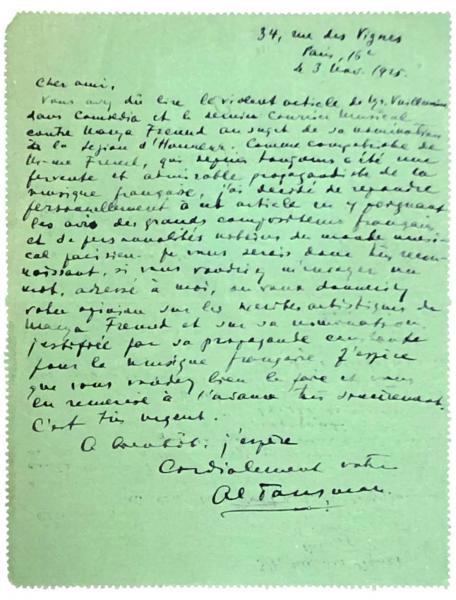 34, rue des Vignes
Paris, 16e
le 3 nov. 1925.
Cher ami,
Vous avez dû lire le violent article de Vuillemin
dans Comoedia et le dernier Courrier Musical
contre Marya Freund au sujet de sa nomination
à la Légion d'Honneur. Comme compatriote de
Mme Freund, qui depuis toujours a été une
fervente et admirable propagandiste de la
musique française, j'ai décidé de répondre
personnellement à cet article en y joignant
les avis des grands compositeurs français
et de personnalités notoires du monde musi-
cal parisien. Je vous serais donc très recon-
naissant, si vous voudriez m'envoyer un
mot, adressé à moi, où vous donneriez
votre opinion sur les mérites artistiques de
Marya Freund et sur sa nomination
justifiée par sa propagande constante
pour la musique française. J'espère
que vous voudrez bien le faire et vous
en remercie à l'avance très sincèrement.
C'est très urgent.
A bientôt, j'espère
Cordialement votre
Al Tansman